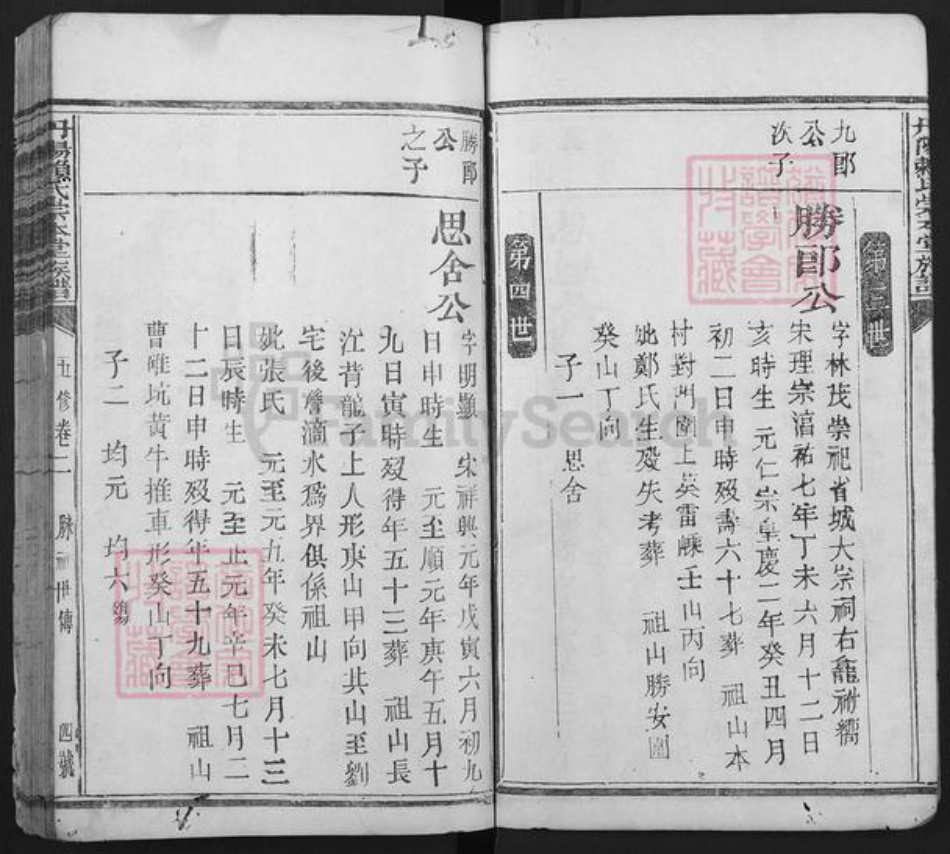 丹陽賴氏崇本堂族譜
第三世
九郎
公
次子
勝郎公
字林茂崇祀省城大宗祠右龕祔饗
宋理宗淳祐七年丁未六月十二日
亥時生 元仁宗皇慶二年癸丑四月
初二日申時殁壽六十七葬 祖山本
村對門圍上英雷嵊壬山丙向
妣鄭氏生殁失考葬 祖山勝安圍
癸山丁向
子一 思舍
第四世
勝郎
公
之子
思舍公
字明顯 宋祥興元年戊寅六月初九
日申時生 元至順元年庚午五月十
九日寅時殁得年五十三葬 祖山長
江背龍子上人形庚山甲向共山至劉
宅後簷滴水爲界俱係祖山
妣張氏 元至元九年癸未七月十三
日辰時生 元至正元年辛巳七月二
十二日申時殁得年五十九葬 祖山
曹碓坑黃牛推車形癸山丁向
子二 均元 均六
丹陽賴氏崇本堂族譜
五修卷二
世傳
四號
FamilySearch